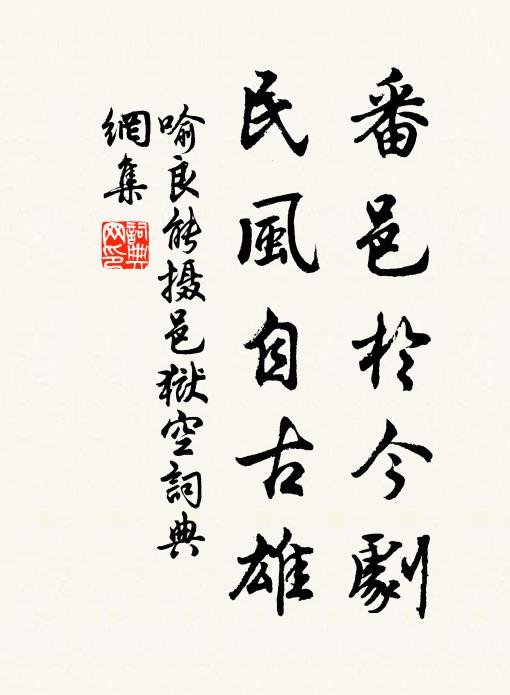 番邑於今劇
民風自古雄
喻良能摄邑獄空詞典
網集
詞典
网印